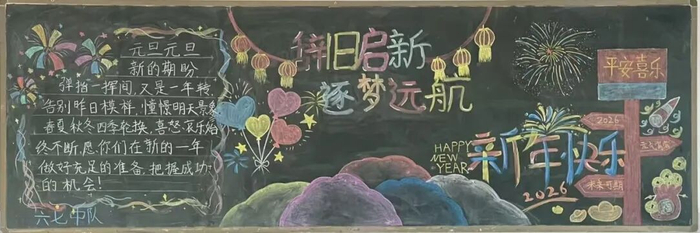 元旦元旦
新的期盼
弹指一挥间,又是一年转
告别昨日模样,憧憬明天景象
春夏秋冬四季轮换,喜怒哀乐始
终不断,愿你们在新的一年
做好充足的准备,把握成功
的机会!
六七中队
辞旧启新
逐梦远航
HAPPY
NEW
YEAR
新年快乐
2026
平安喜乐
2026
未来可期